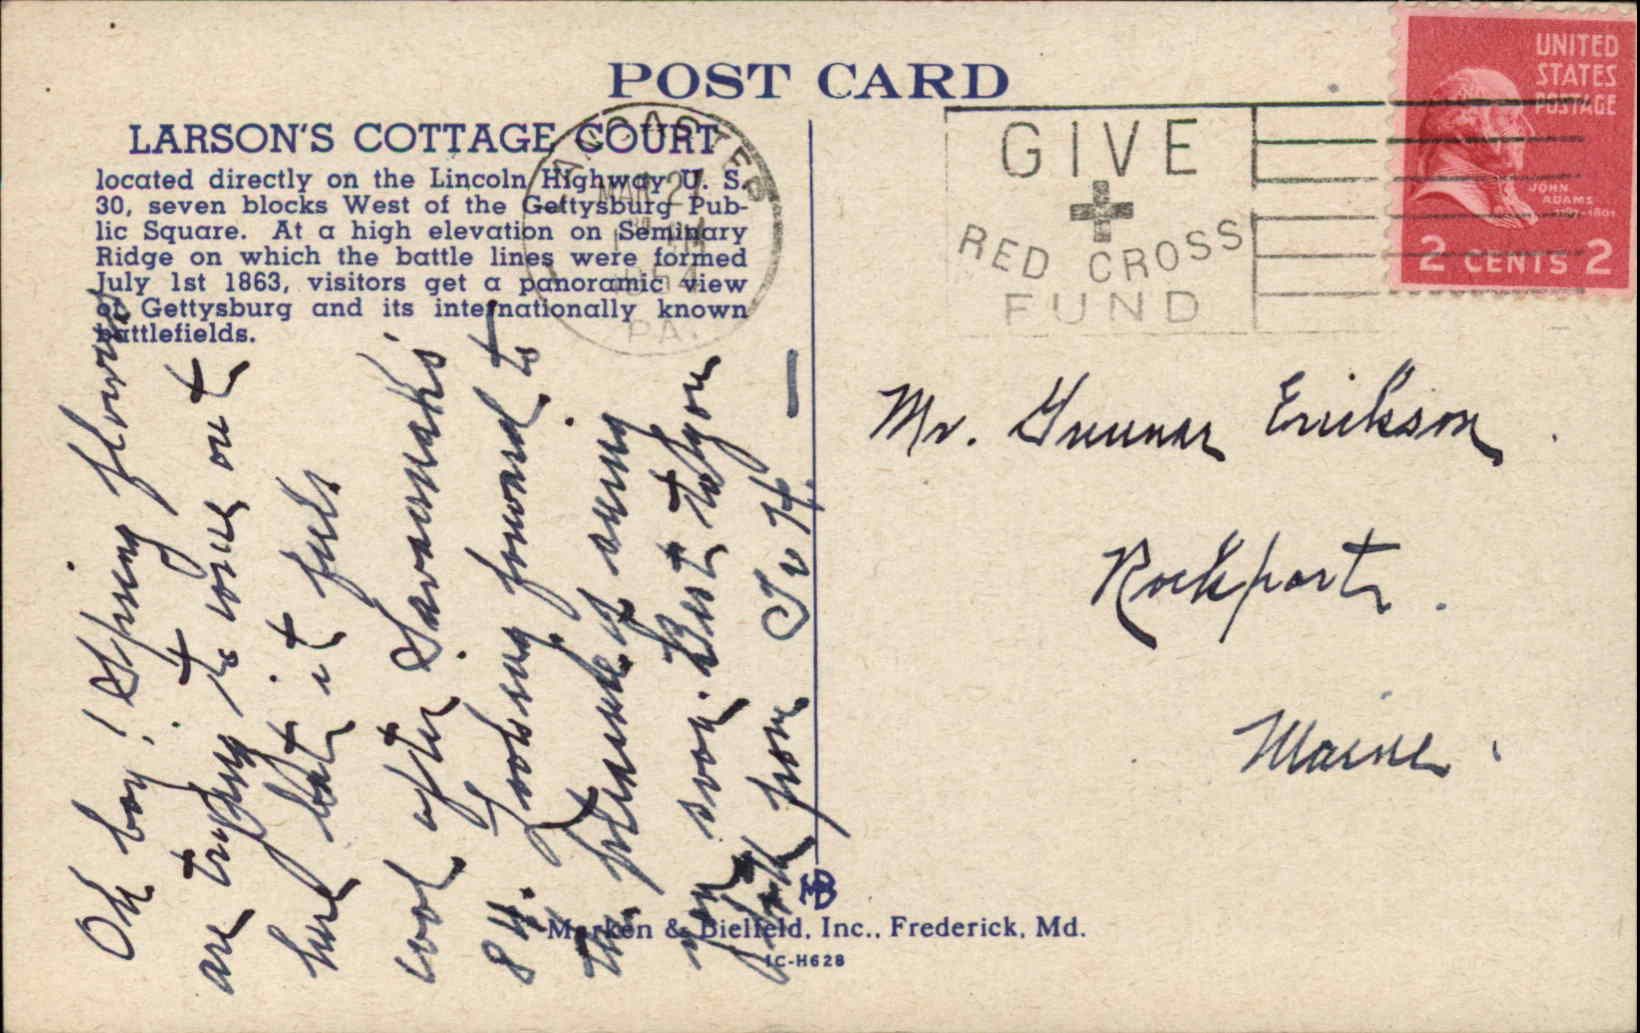 POST CARD
LARSON'S COTTAGE COURT
located directly on the Lincoln Highway U. S.
30, seven blocks West of the Gettysburg Pub-
lic Square. At a high elevation on Seminary
Ridge on which the battle lines were formed
July 1st 1863, visitors get a panoramic view
of Gettysburg and its internationally known
battlefields.
LANCASTER
MAR 2
PM
1954
PA.
GIVE
RED CROSS
FUND
UNITED
STATES
POSTAGE
JOHN
ADAMS
1797-1801
2 CENTS 2
Oh boy! Spring flowers
are trying to come out
here but it feels
cool after Savannah's
84. Looking forward to
the pleasure of seeing
you soon. Best to you
both from I v H.
Mr. Gunnar Erikson
Rockport.
Maine
MB
Marken & Bielfeld, Inc., Frederick, Md.
1C-H628